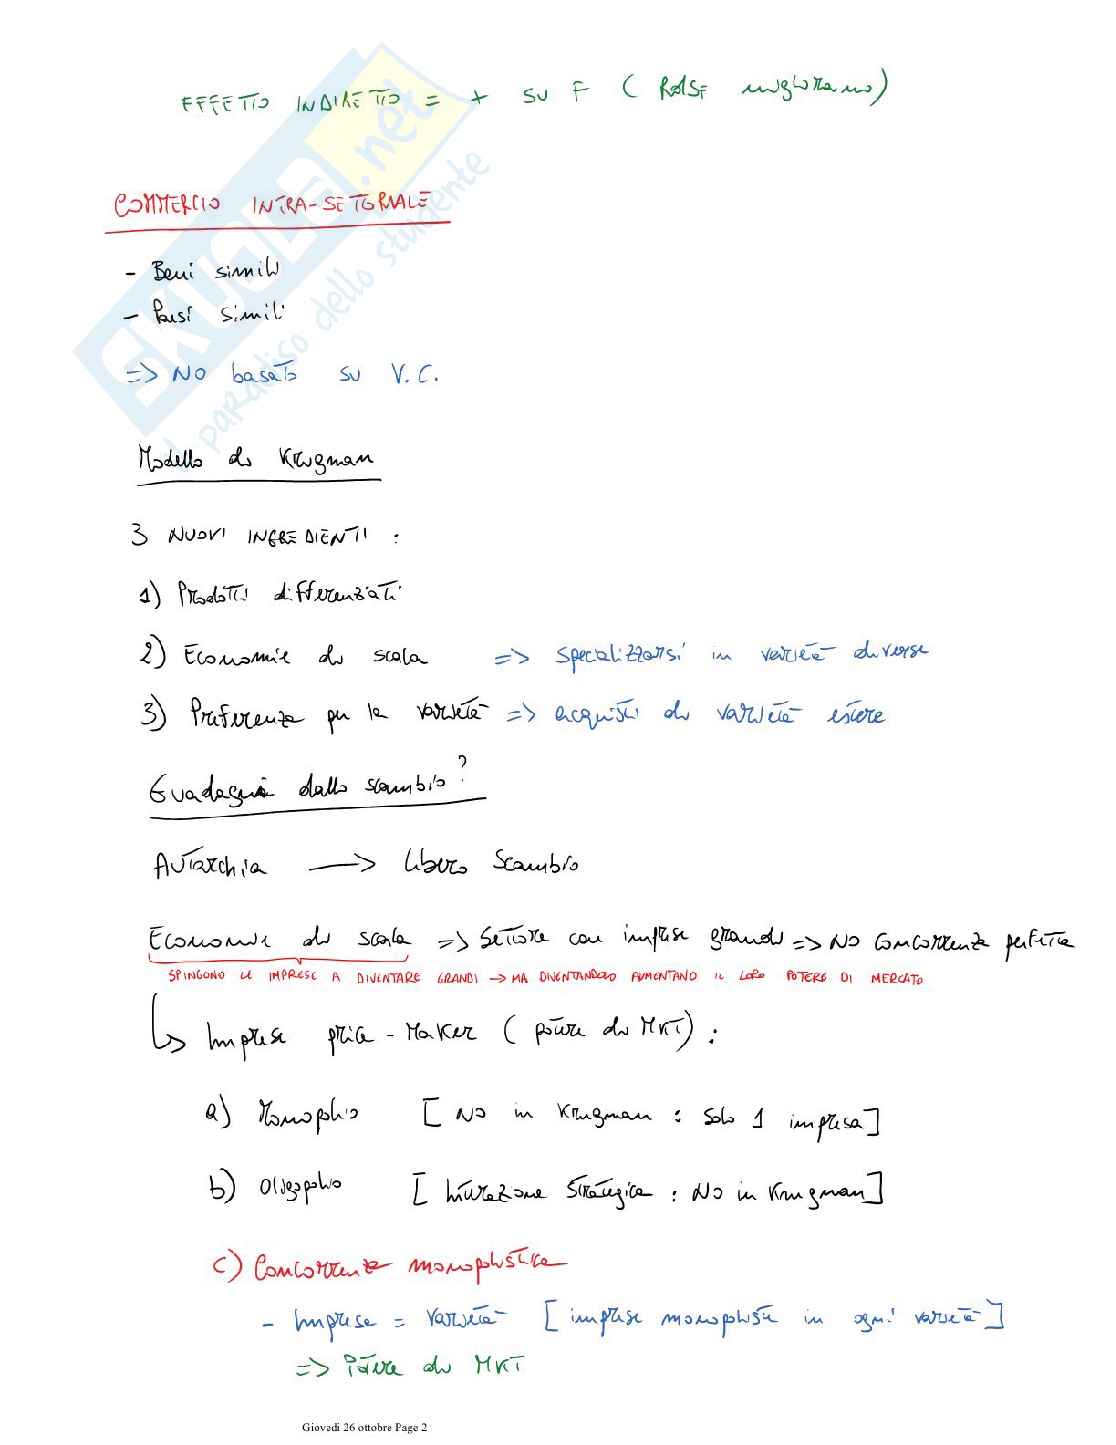 EFFETTO INDIRETTO = + SU F ( RdSF migliorano)
COMMERCIO INTRA-SETTORIALE
- Beni simili
- Paesi simili
=> NO basato su V.C.
Modello di Krugman
3 NUOVI INGREDIENTI :
1) Prodotti differenziati
2) Economie di scala => specializzarsi in varietà diverse
3) Preferenza per la varietà => acquisti di varietà estere
Guadagni dallo scambio?
Autarchia → libero scambio
Economie di scala => Settore con imprese grandi => NO concorrenza perfetta
SPINGONO LE IMPRESE A DIVENTARE GRANDI → MA DIVENTANDOLO AUMENTANO IL LORO POTERE DI MERCATO
↳ Imprese price-Maker ( potere di MKT) :
a) Monopolio [ No in Krugman : solo 1 impresa]
b) Oligopolio [ Interazione Strategica : No in Krugman]
c) Concorrenza monopolistica
- Imprese = varietà [ imprese monopoliste in ogni varietà ]
=> Potere di MKT
Giovedì 26 ottobre Page 2
SKUOLA.net
il paradiso dello studente